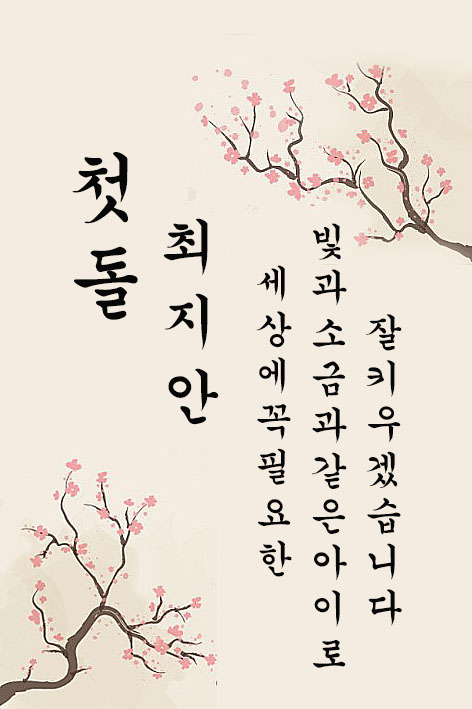 첫돌
최지안
세상에꼭필요한
빛과소금과같은아이로
잘키우겠습니다